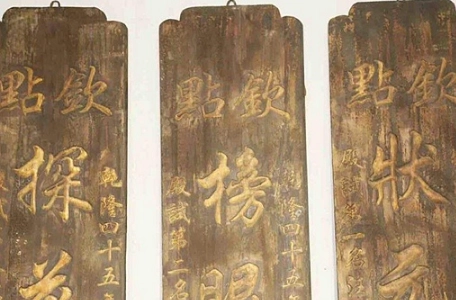 欽點
狀元
殿試第一名
欽點
榜眼
乾隆四十五年
殿試第二名
欽點
探花
乾隆四十五年